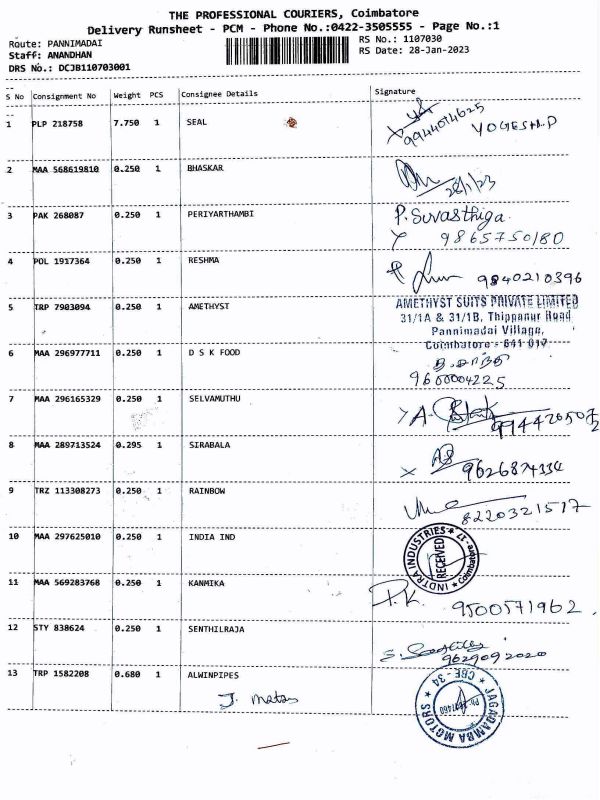 THE PROFESSIONAL COURIERS, Coimbatore
Delivery Runsheet - PCM - Phone No.:0422-3505555 - Page No.:1
Route: PANNIMADAI
RS No.: 1107030
Staff: ANANDHAN
RS Date: 28-Jan-2023
DRS No.: DCJB110703001
S No Consignment No Weight PCS Consignee Details Signature
1 PLP 218758 7.750 1 SEAL 9944014625 YOGESH.P
2 MAA 568619810 0.250 1 BHASKAR 28/1/23
3 PAK 268087 0.250 1 PERIYARTHAMBI P. Suvasthiga
9865750180
4 POL 1917364 0.250 1 RESHMA 9840210396
5 TRP 7903094 0.250 1 AMETHYST AMETHYST SUITS PRIVATE LIMITED
31/1A & 31/1B, Thippanur Road
Pannimadai Village,
Coimbatore - 641 017
6 MAA 296977711 0.250 1 D S K FOOD
9600004225
7 MAA 296165329 0.250 1 SELVAMUTHU
8 MAA 289713524 0.295 1 SIRABALA 9626874334
9 TRZ 113308273 0.250 1 RAINBOW 8220321517
10 MAA 297625010 0.250 1 INDIA IND INDTRA INDUSTRIES RECEIVED Coimbatore - 17
11 MAA 569283768 0.250 1 KANMIKA P.K. 9500571962
12 STY 838624 0.250 1 SENTHILRAJA
9629092020
13 TRP 1582208 0.680 1 ALWINPIPES JAGADAMBA MOTORS CBE - 34